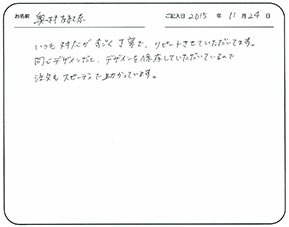 お名前 奥村 ご記入日 2015 年 11月 24日
いつも対応がすごく丁寧で、リピートさせていただいてます。
同じデザインだと、デザインを保存していただいているので
注文もスピーディで助かっています。